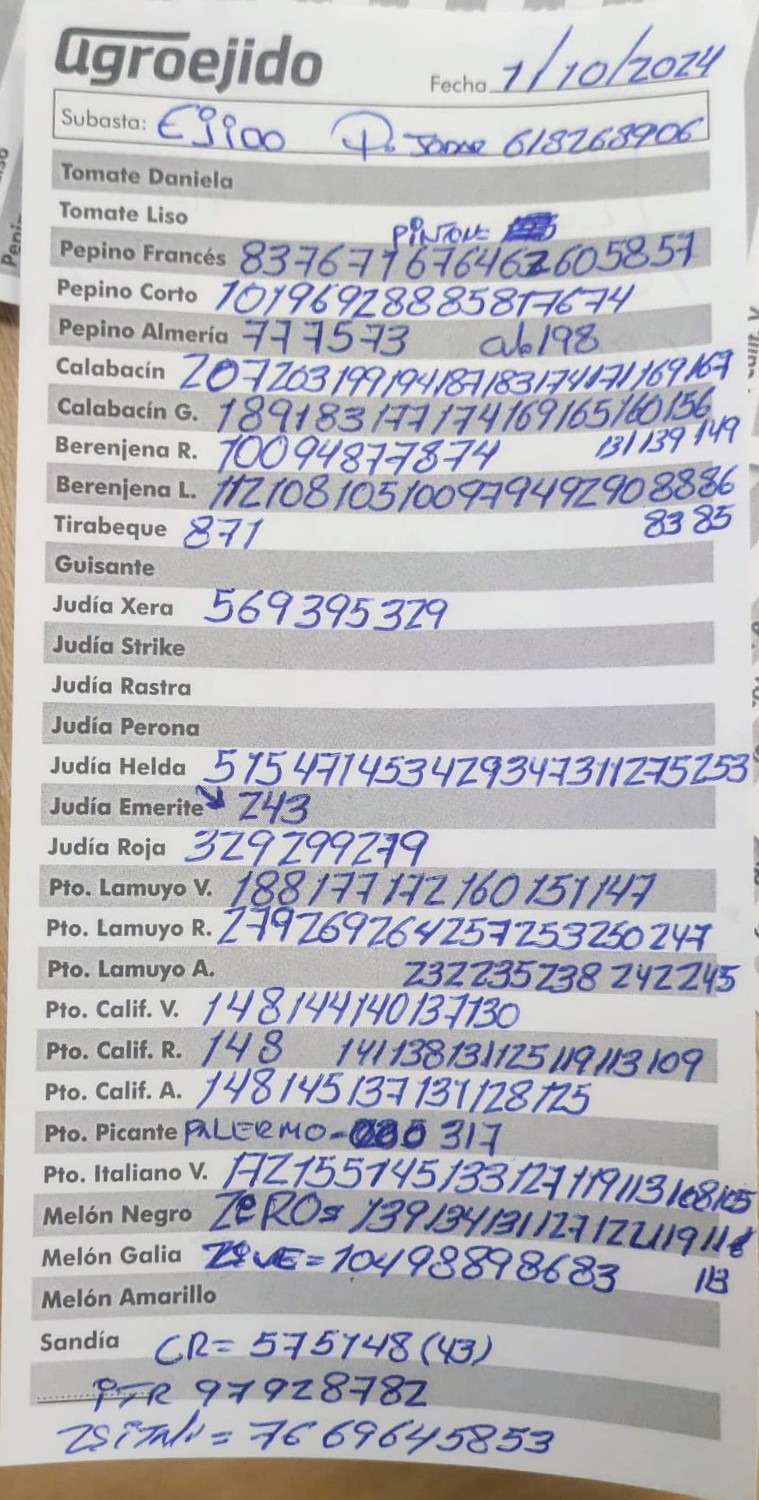 agroejido
Fecha 1/10/2024
Subasta: Ejido P. Jamar 618268906
Tomate Daniela
Tomate Liso
PINTON=
Pepino Francés 83767716764626058 57
Pepino Corto 101969288858176 74
Pepino Almería 777573 ab198
Calabacín 207203199194187183174171169167
Calabacín G. 189183177174169165160156
131139149
Berenjena R. 10094877874
Berenjena L. 112108105100979492908886
Tirabeque 871 8385
Guisante
Judía Xera 569395329
Judía Strike
Judía Rastra
Judía Perona
Judía Helda 515471453429347311275253
Judía Emerite 243
Judía Roja 329299279
Pto. Lamuyo V. 188177172160151147
Pto. Lamuyo R. 279269264257253250247
Pto. Lamuyo A. 232235238242245
Pto. Calif. V. 148144140137130
Pto. Calif. R. 148 141138131125119113109
Pto. Calif. A. 148145137131128125
Pto. Picante PALERMO- 317
Pto. Italiano V. 172155145133127119113108105
Melón Negro ZERO= 139134131127122119116
Melón Galia =10498898683 113
Melón Amarillo
Sandía CR= 575148(43)
97928782
= 7669645853